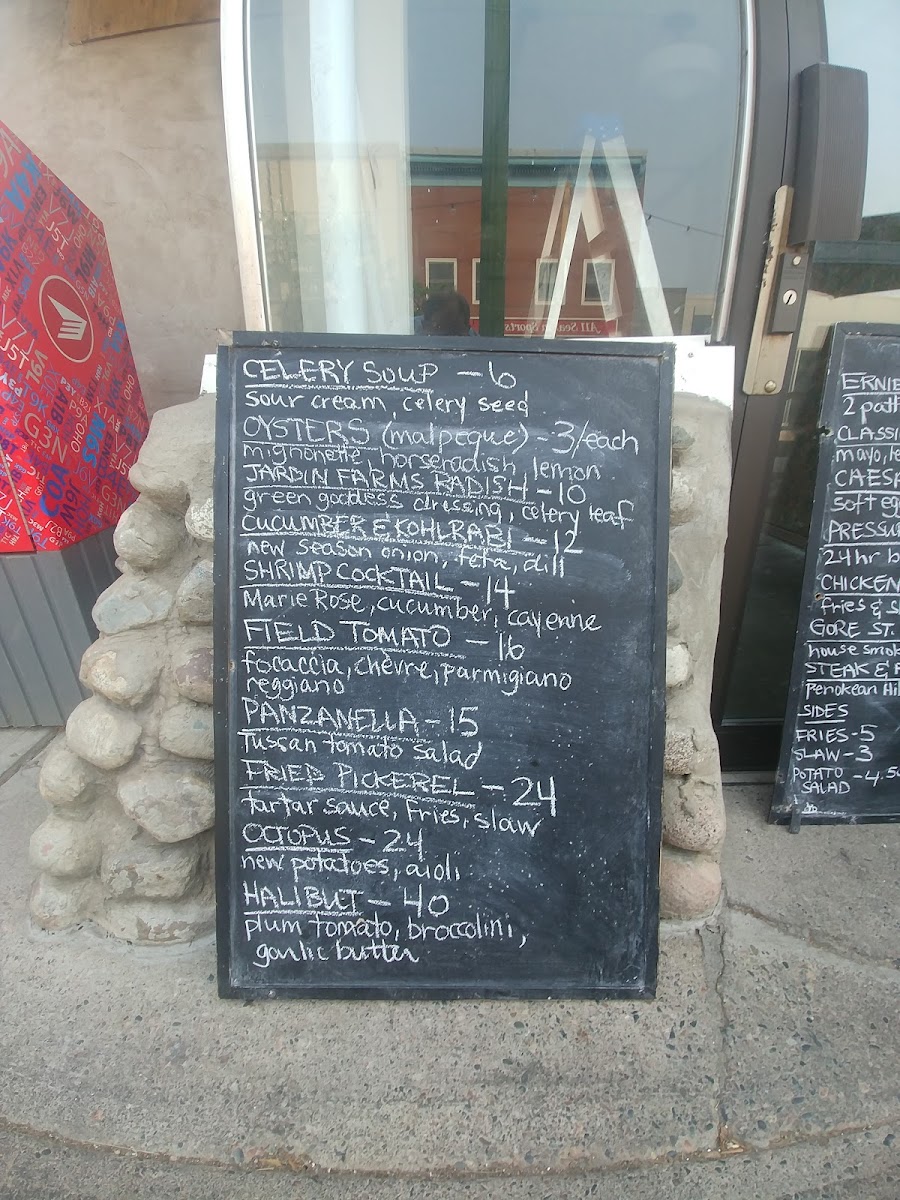 CELERY SOUP - 6
sour cream, celery seed
OYSTERS (malpeque) - 3/each
mignonette, horseradish, lemon
JARDIN FARMS RADISH - 10
green goddess dressing, celery leaf
CUCUMBER & KOHLRABI - 12
new season onion, feta, dill
SHRIMP COCKTAIL - 14
Marie Rose, cucumber, cayenne
FIELD TOMATO - 16
focaccia, chèvre, parmigiano
reggiano
PANZANELLA - 15
Tuscan tomato salad
FRIED PICKEREL - 24
tartar sauce, fries, slaw
OCTOPUS - 24
new potatoes, aioli
HALIBUT - 40
plum tomato, broccolini,
garlic butter
ERNIE
2 patt
CLASSI
mayo, le
CAESA
soft eg
PRESSU
24hr b
CHICKEN
fries & s
GORE ST.
house smok
STEAK & F
Penokean Hil
SIDES
FRIES - 5
SLAW - 3
POTATO SALAD - 4.50
All Season Sports
G3N
J5T